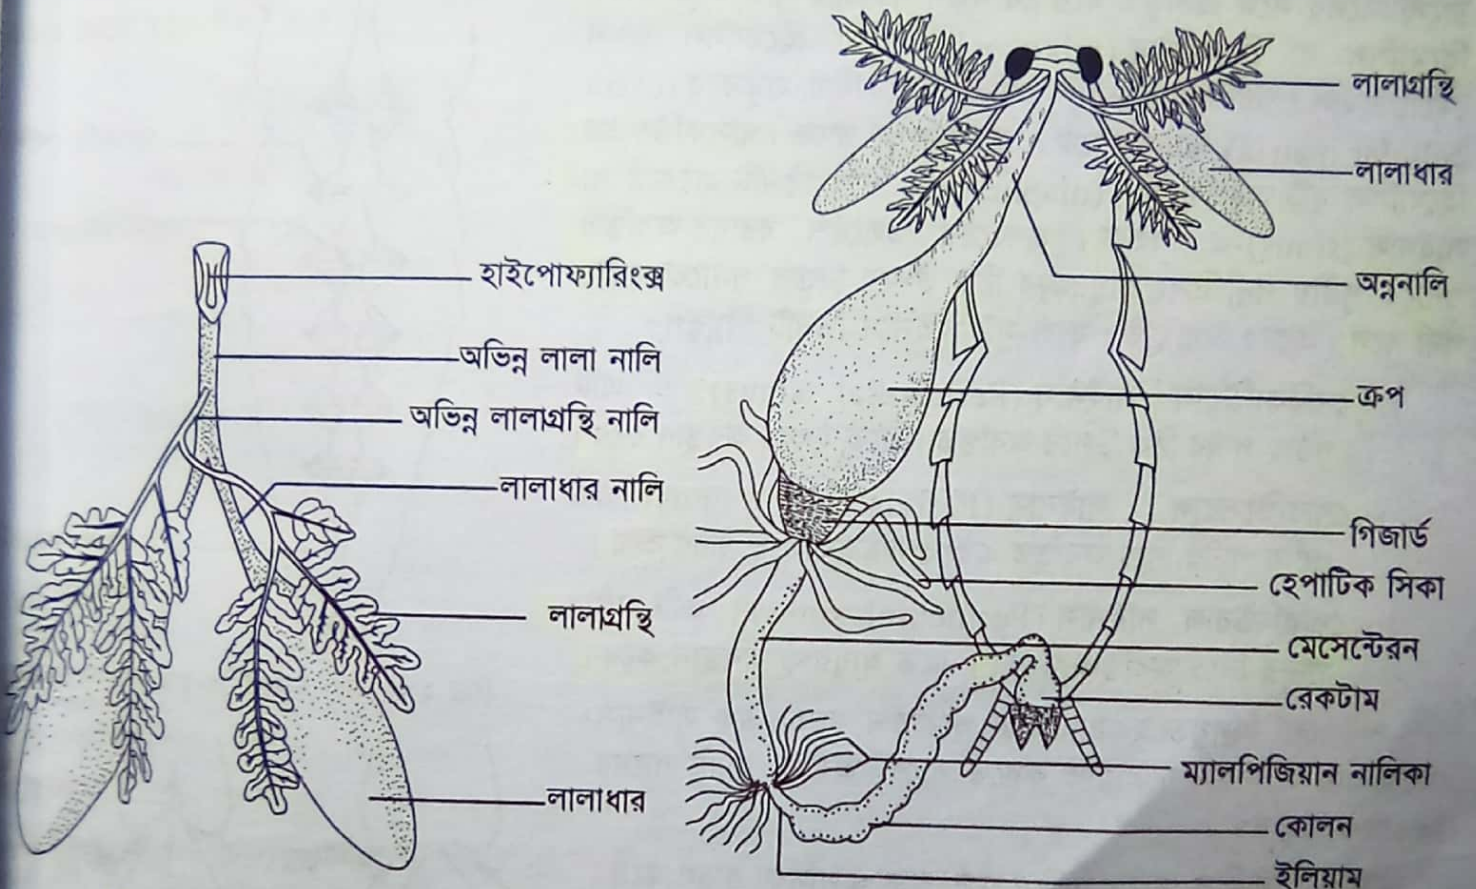 হাইপোফ্যারিংক্স
অভিন্ন লালা নালি
অভিন্ন লালাগ্রন্থি নালি
লালাধার নালি
লালাগ্রন্থি
লালাধার
লালাগ্রন্থি
লালাধার
অন্ননালি
ক্রপ
গিজার্ড
হেপাটিক সিকা
মেসেন্টেরন
রেকটাম
ম্যালপিজিয়ান নালিকা
কোলন
ইলিয়াম